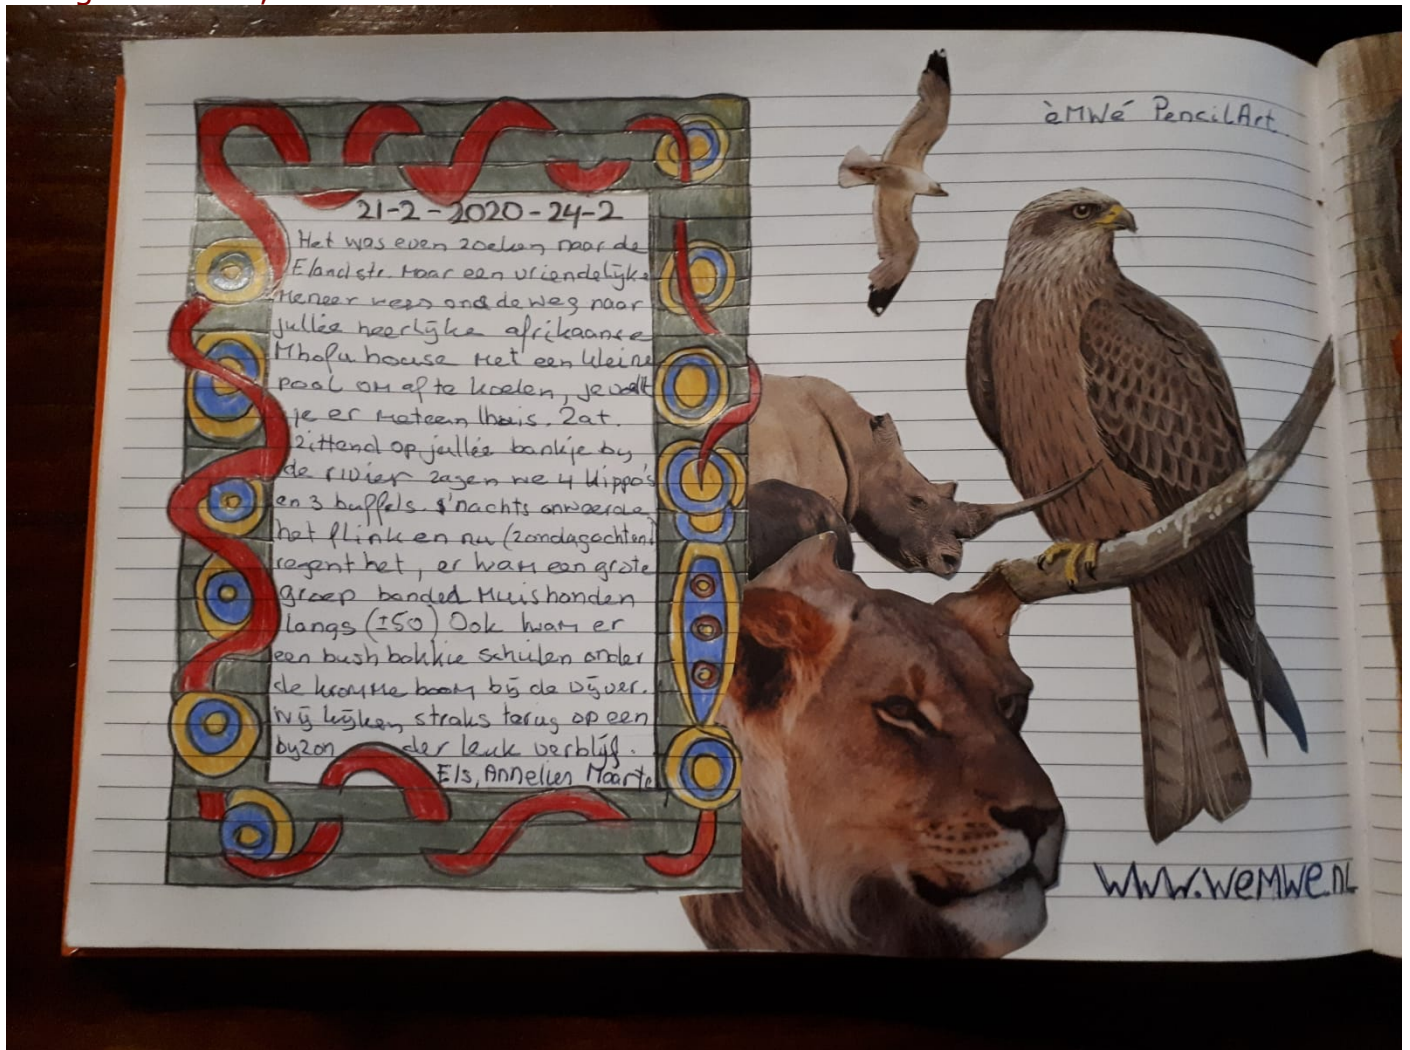 21-2-2020-24-2
Het was even zoeken naar de
Elandstr. Maar een vriendelijke
Meneer wees ons de weg naar
jullie heerlijke afrikaanse
Mhofu house Met een kleine
pool om af te koelen, je voelt
je er meteen thuis. Zat.
Zittend op jullie bankje by
de rivier zagen we 4 Hippo's
en 3 buffels. s'nachts onweerde
het flink en nu (zondagochtend)
regent het, er kwam een grote
groep banded Muishonden
langs (±50) Ook kwam er
een bushbokkie schuilen onder
de kromme boom bij de vijver.
Wij kijken straks terug op een
byzonder leuk verblijf.
Els, Annelies Maarte
èMWé PencilArt
www.weMwe.nL